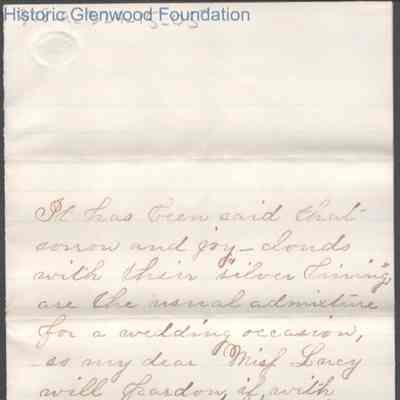 Historic Glenwood Foundation
It has been said that
sorrow and joy - clouds
with their "silver lining"
are the usual admixture
for a wedding occasion,
so my dear Miss Lucy
will pardon, if, with